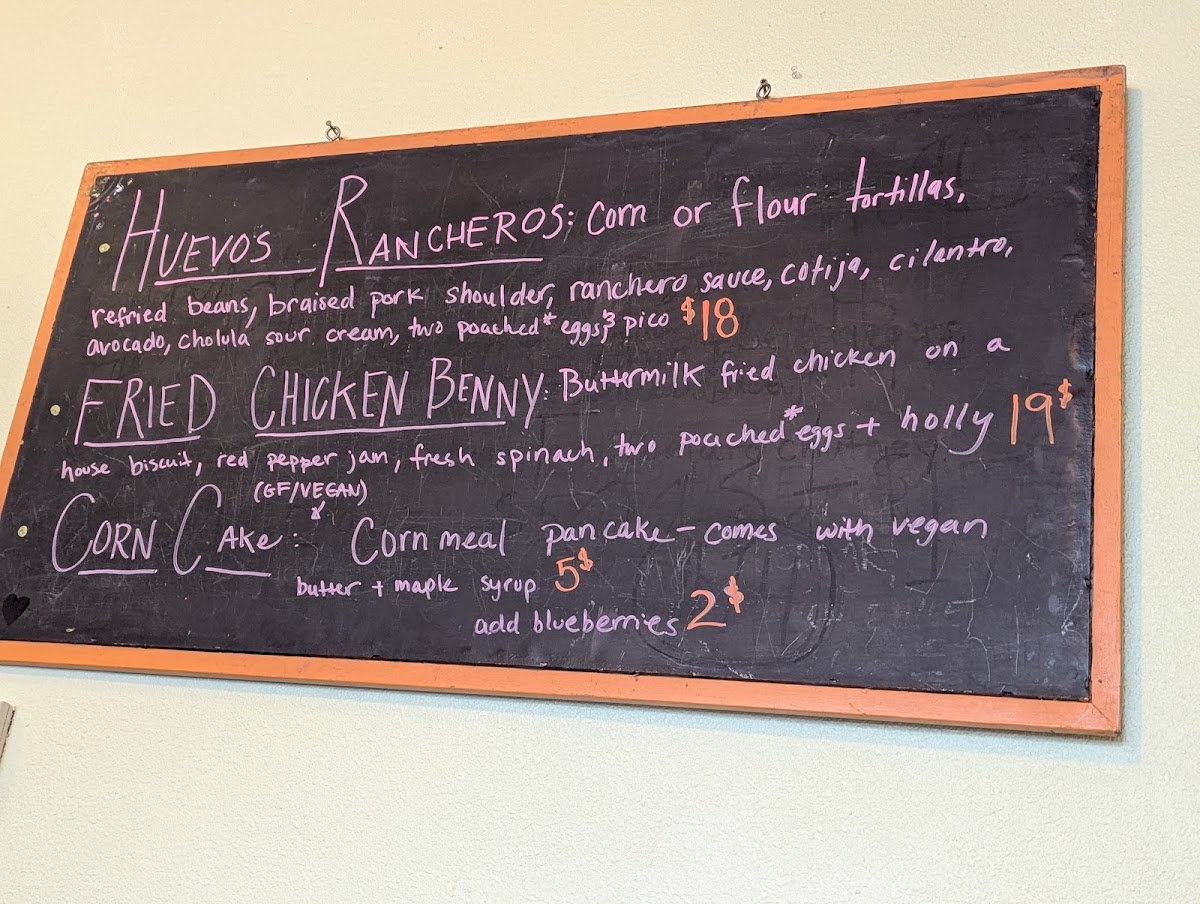 HUEVOS RANCHEROS: Corn or flour tortillas,
refried beans, braised pork shoulder, ranchero sauce, cotija, cilantro,
avocado, cholula sour cream, two poached* eggs, & pico $18
FRIED CHICKEN BENNY: Buttermilk fried chicken on a
house biscuit, red pepper jam, fresh spinach, two poached* eggs + holly 19$
(GF/VEGAN)
CORN CAKE: Corn meal pancake - comes with vegan
butter + maple syrup 5$
add blueberries 2$